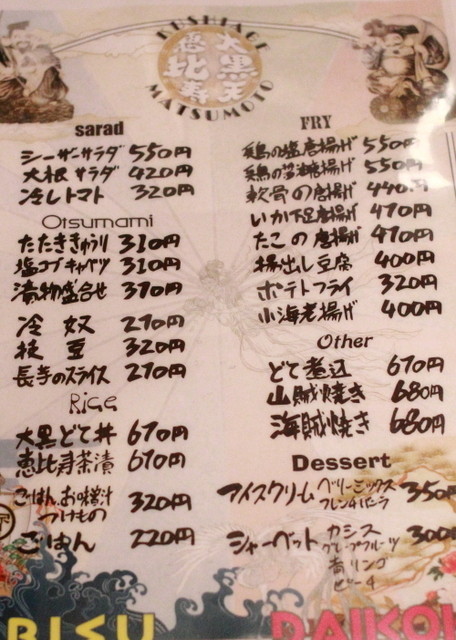 KUSHIAGE
恵比寿
大黒天
MATSUMOTO
sarad
シーザーサラダ 550円
大根サラダ 420円
冷しトマト 320円
Otsumami
たたききゅうり 310円
塩コブキャベツ 310円
漬物盛合せ 370円
冷奴 270円
枝豆 320円
長芋のスライス 270円
Rice
大黒どて丼 670円
恵比寿茶漬 670円
ごはん、お味噌汁 つけもの 320円
ごはん 220円
FRY
鶏の塩唐揚げ 550円
鶏の醤油唐揚げ 550円
軟骨の唐揚げ 440円
いか下足唐揚げ 470円
たこの唐揚げ 470円
揚出し豆腐 400円
ポテトフライ 320円
小海老揚げ 400円
Other
どて煮込 670円
山賊焼き 680円
海賊焼き 680円
Dessert
アイスクリーム ベリーミックス 350円
フレンチバニラ
シャーベット カシス 300
グレープフルーツ
青リンゴ
ピーチ
BISU
DAIKO